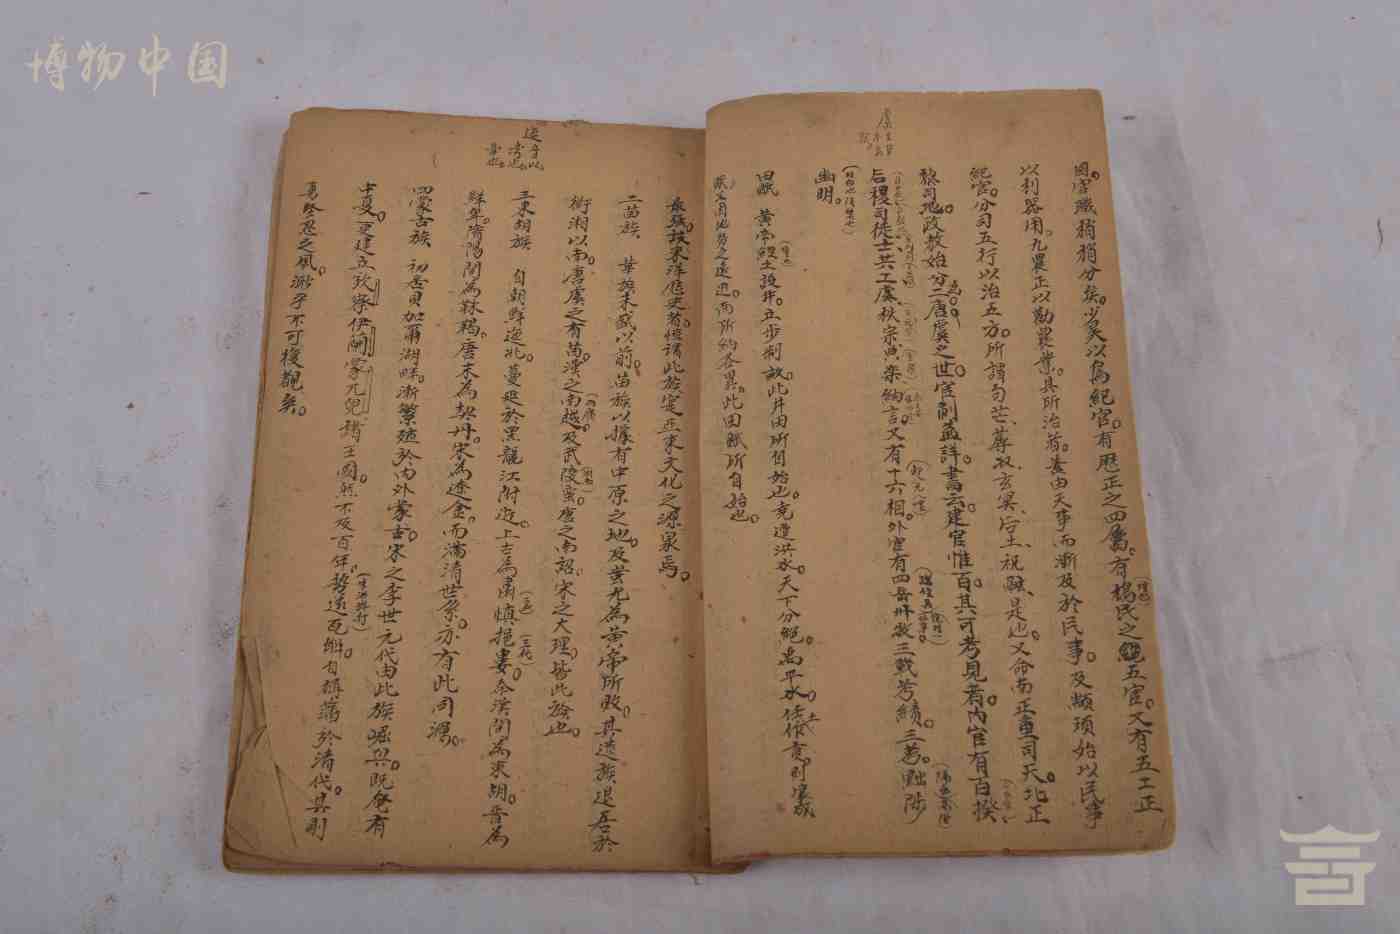 博物中国
因官職稍稍分矣。少昊以鳥紀官。有歷正之四屬。有鳩民之五官。又有五工正
以利器用。九農正以勸農業。具所治者。蓋由天事而漸及於民事。及顓頊始以民事
紀官。分司五行以治五方。所謂勾芒、蓐收、玄冥、后土、祝融、是也。又命南正重司天。北正
黎司地。政教始分焉。唐虞之世。官制益詳。書云。建官惟百。其可考見者。內官有百揆
后稷司徒士共工虞、秩宗典樂納言。又有十六相。外官有四岳州牧三載考績。三考。黜陟
幽明。
田賦 黃帝經土設井。立步制畝。此井田所自始也。堯遭洪水。天下分絕。禹平水土。任作貢。則壤成
賦。不因地勢之遠近。而所納各異。此田賦所自始也。
最強。故東洋歷史者。恒謂此族實亞東文化之源泉焉。
二苗族 華族未盛以前。苗族以據有中原之地。及蚩尤為黃帝所敗。其遺族退居於
衡湘以南。唐虞之有苗。漢之南越。及武陵蠻。唐之南詔、宋之大理、皆此族也。
三東胡族 自朝鮮迤北。蔓延於黑龍江附近。上古為肅慎挹婁。秦漢間為東胡。晉為
鮮卑。齊隋間為靺鞨。唐末為契丹。宋為遼金。而滿清世系。亦有此同源。
四蒙古族 初居貝加爾湖畔。漸繁殖於內外蒙古。宋之季世元代由此族崛興。既奄有
中夏。更建立欽察伊闊窩兀兒諸王國。然不及百年。暫遂瓦解。自稱藩於清代。其剛
勇堅忍之風。渺乎不可複觀矣。